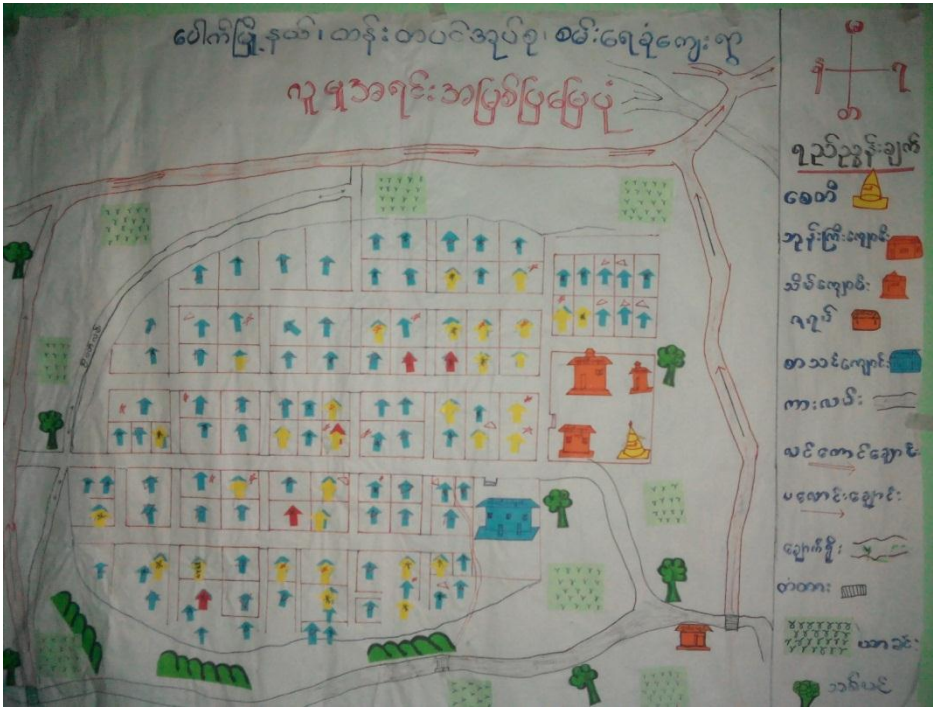 ပေါက်မြို့နယ်၊ တန်းတပင်အုပ်စု၊ စမ်းရေခဲကျေးရွာ
လူမှုအရင်းအမြစ်ပြမြေပုံ
မ
န
ရ
တ
ရည်ညွှန်းချက်
စေတီ
ဘုန်းကြီးကျောင်း
သိမ်ကျောင်း
ဇရပ်
စာသင်ကျောင်း
ကားလမ်း
ချောက်ရိုး
တံတား
ယာခင်း
သစ်ပင်